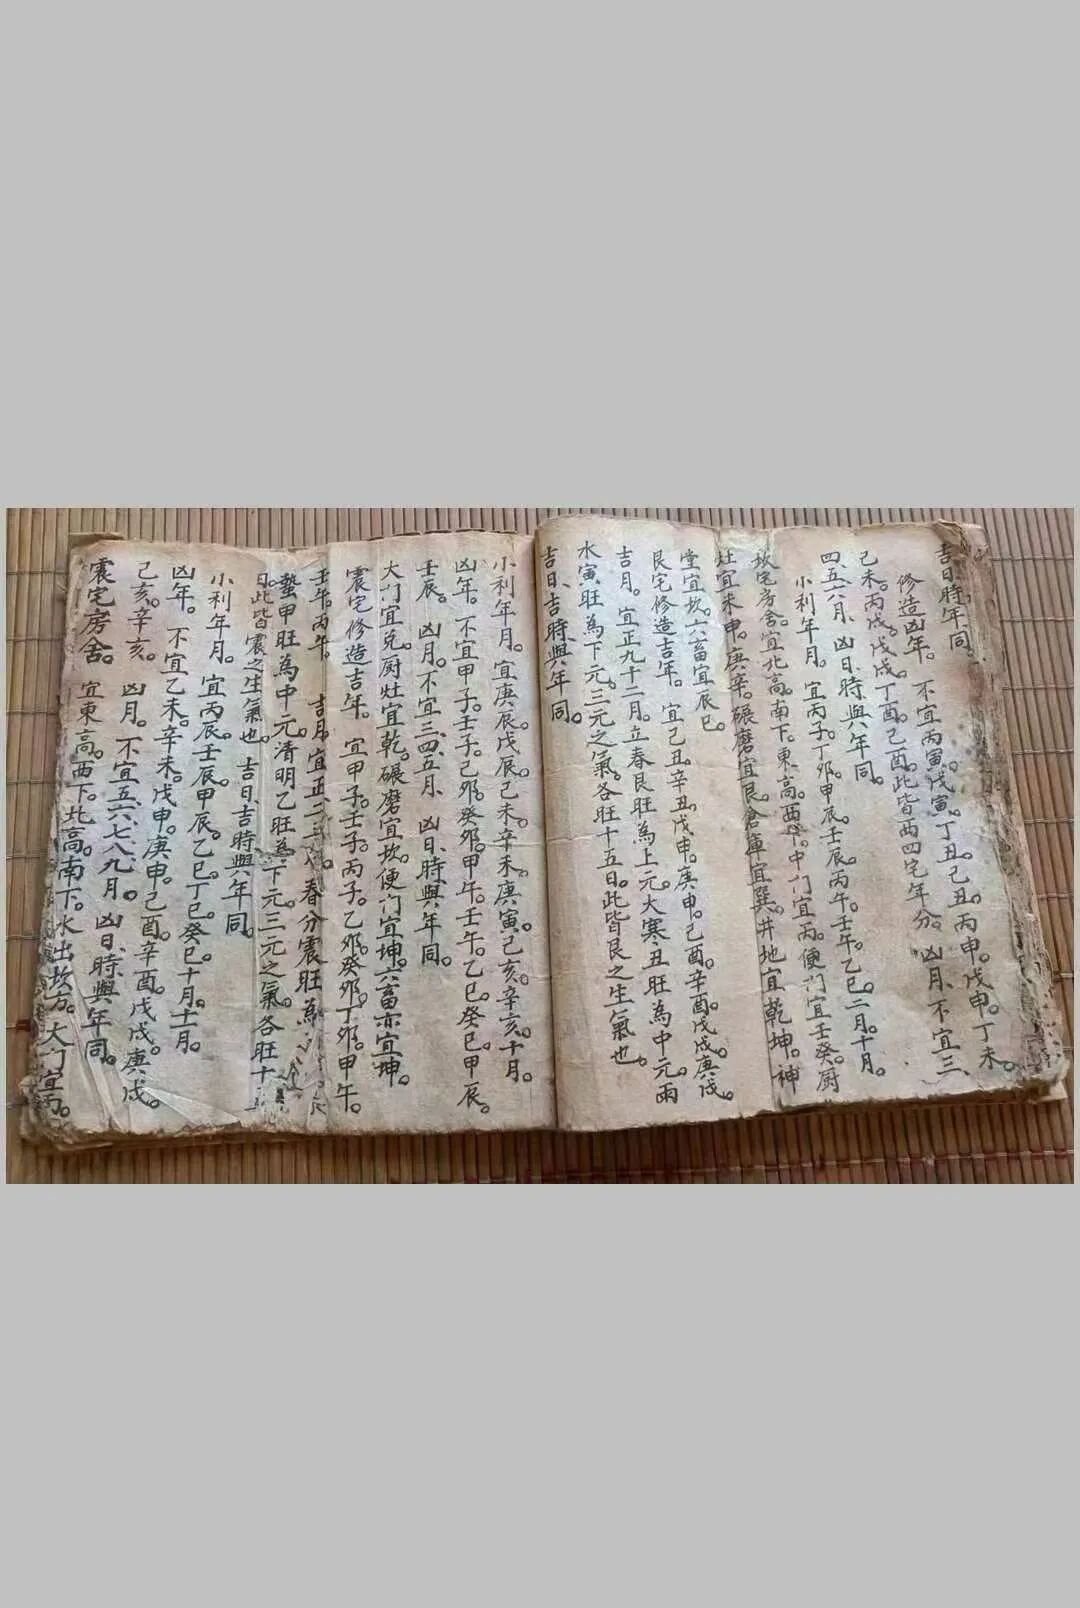 吉日、時年同。
修造凶年。不宜丙寅。戊寅。丁丑。己丑。丙申。戊申。丁未。
己未。丙戌。戊戌。丁酉。己酉。此皆西四宅年分。凶月、不宜三、
四、五、六月、凶日、時與年同。
小利年月。宜丙子。丁卯。甲辰。壬辰。丙午。壬午。乙巳。二月。十月。
坎宅房舍。宜北高。南下。東高。西下。中门宜丙。便门宜壬癸。厨
灶宜未申。庚辛。碾磨宜艮。倉庫宜巽。井地宜乾坤。神
堂宜坎。六畜宜辰巳。
艮宅修造吉年。宜己丑。辛丑。戊申。庚申。己酉。辛酉。戊戌。庚戌。
吉月。宜正九十二月。立春艮旺為上元。大寒丑旺為中元。雨
水寅旺為下元。三元之氣。各旺十五日。此皆艮之生氣也。
吉日、吉時、與年同。
小利年月。宜庚辰。戊辰。己未。辛未。庚寅。己亥。辛亥。十月。
凶年。不宜甲子。壬子。己卯。癸卯。甲午。壬午。乙巳。癸巳。甲辰。
壬辰。凶月。不宜三、四、五月、凶日、時與年同。
大门宜兑。厨灶宜乾。碾磨宜坎。便门宜坤。六畜亦宜坤。
震宅修造吉年。宜甲子。壬子。丙子。乙卯。癸卯。丁卯。甲午。
壬午。丙午。吉月。宜正二三、春分震旺為
蟄甲旺為中元。清明乙旺為下元。三元之氣。各旺十
日。此皆震之生氣也。吉日、吉時與年同。
小利年月。宜丙辰。壬辰。甲辰。乙巳。丁巳。癸巳。十月。十一月。
凶年。不宜乙未。辛未。戊申。庚申。己酉。辛酉。戊戌。庚戌。
己亥。辛亥。凶月。不宜五、六、七、八、九月。凶日、時與年同。
震宅房舍。宜東高。西下。北高。南下。水出坎方。大门宜丙。